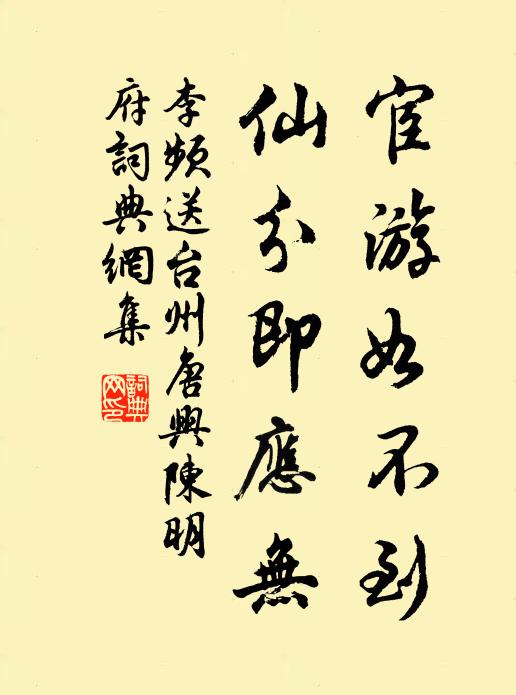 宦游如不到
仙分即應無
李頻送台州唐興陳明
府詞典網集
詞典網印